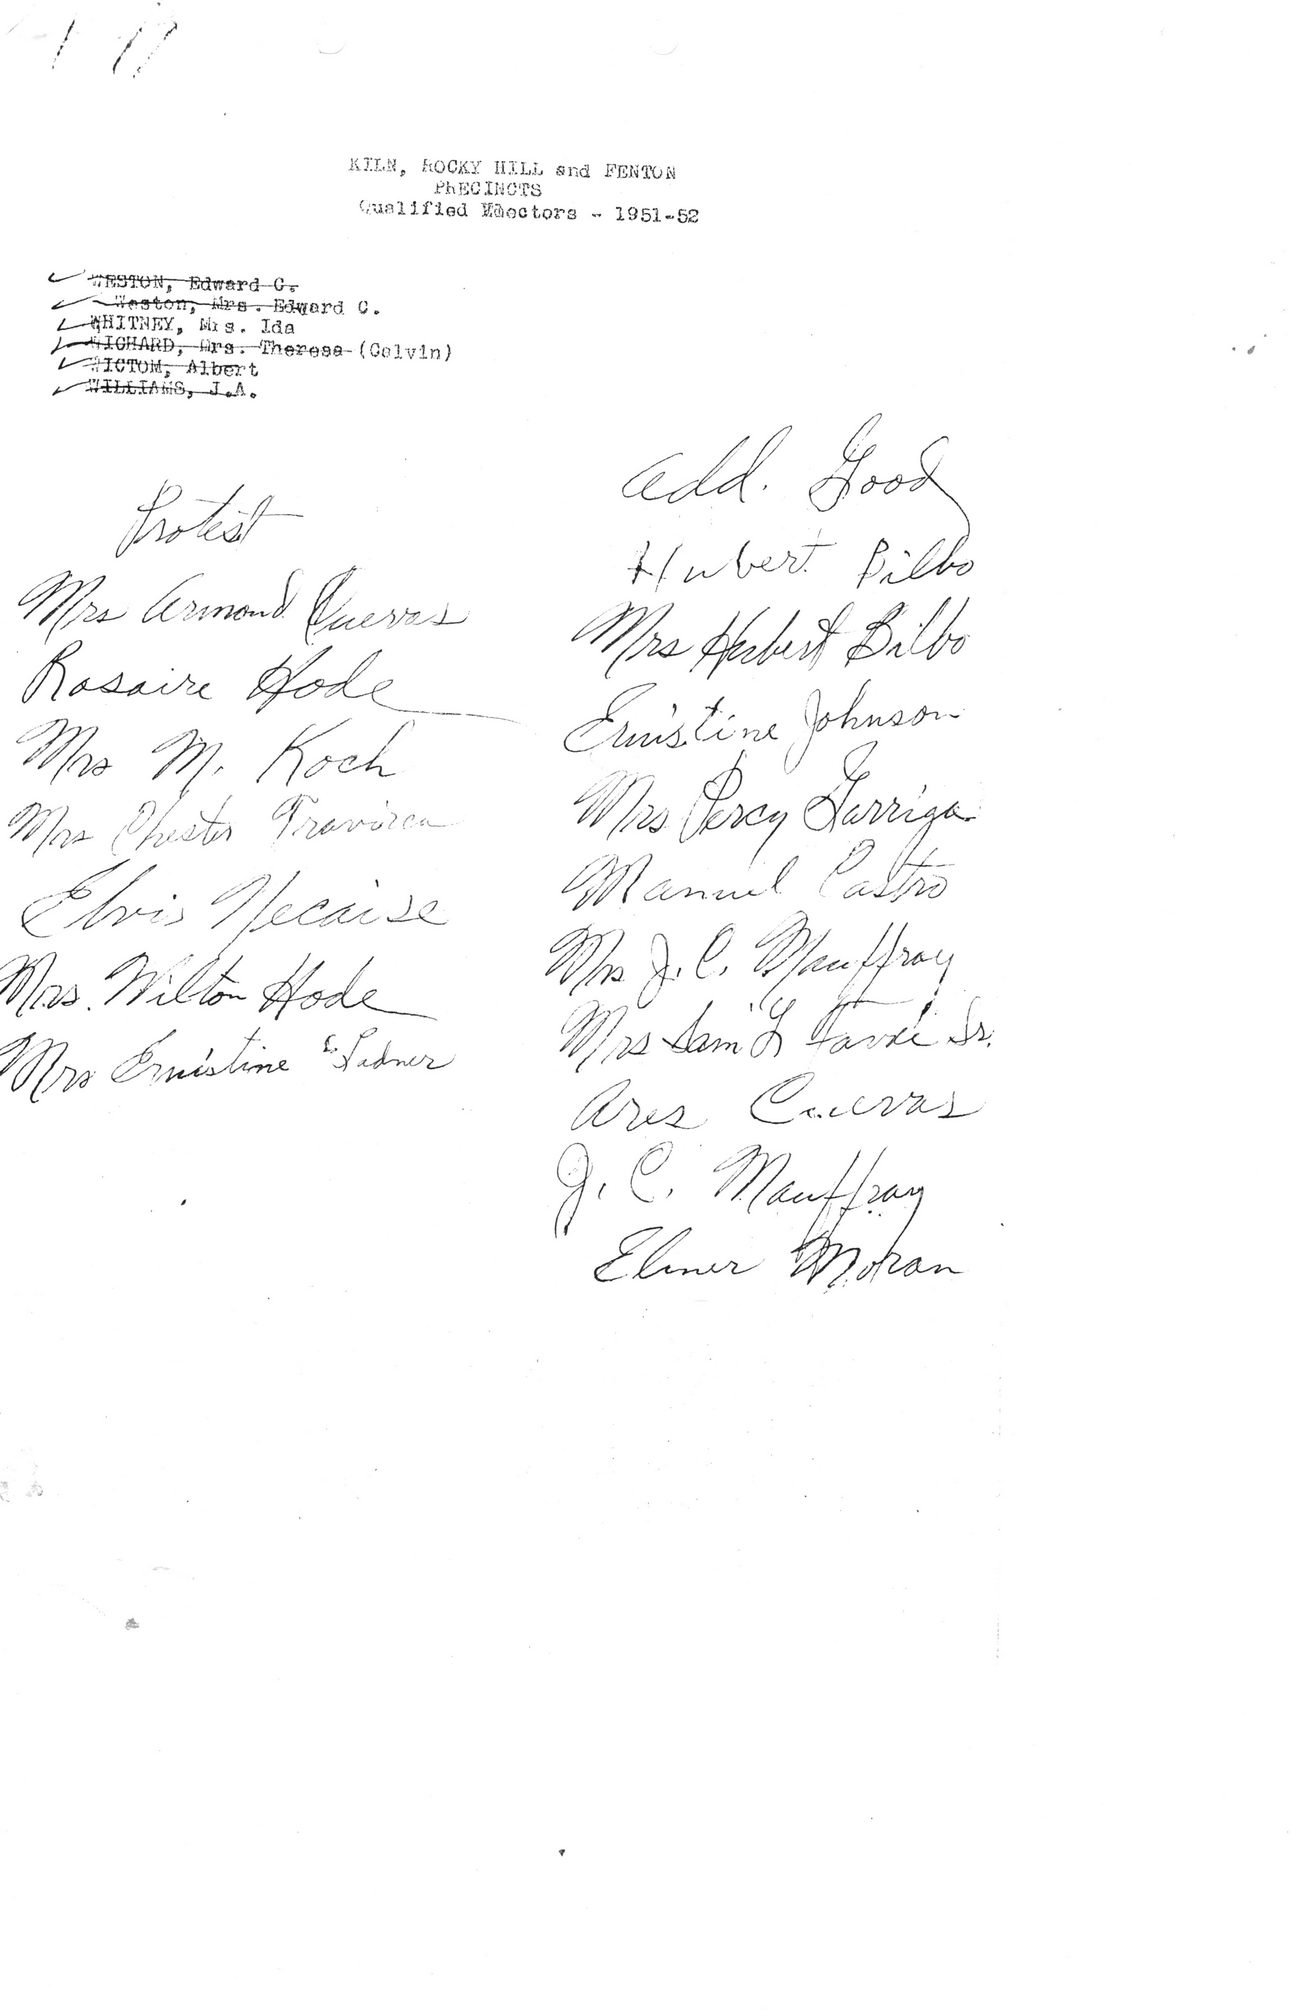 KILN, ROCKY HILL and FENTON
PRECINCTS
Qualified Electors - 1951-52
WESTON, Edward C.
Weston, Mrs. Edward C.
WHITNEY, Mrs. Ida
WICHARD, Mrs. Theresa (Calvin)
WICTOM, Albert
WILLIAMS, J.A.
Protest
Mrs Armond Cuevas
Rosaire Hode
Mrs M. Koch
Mrs Chester Travirca
Elvis Necaise
Mrs. Wilton Hode
Mrs Ernistine Ladner
add. Good
Hubert Bilbo
Mrs Hubert Bilbo
Ernistine Johnson
Mrs Percy Garriga
Manuel Castro
Mrs J. C. Mauffray
Mrs Sam L Favre Sr.
Ares Cuevas
J. C. Mauffray
Elmer Moran